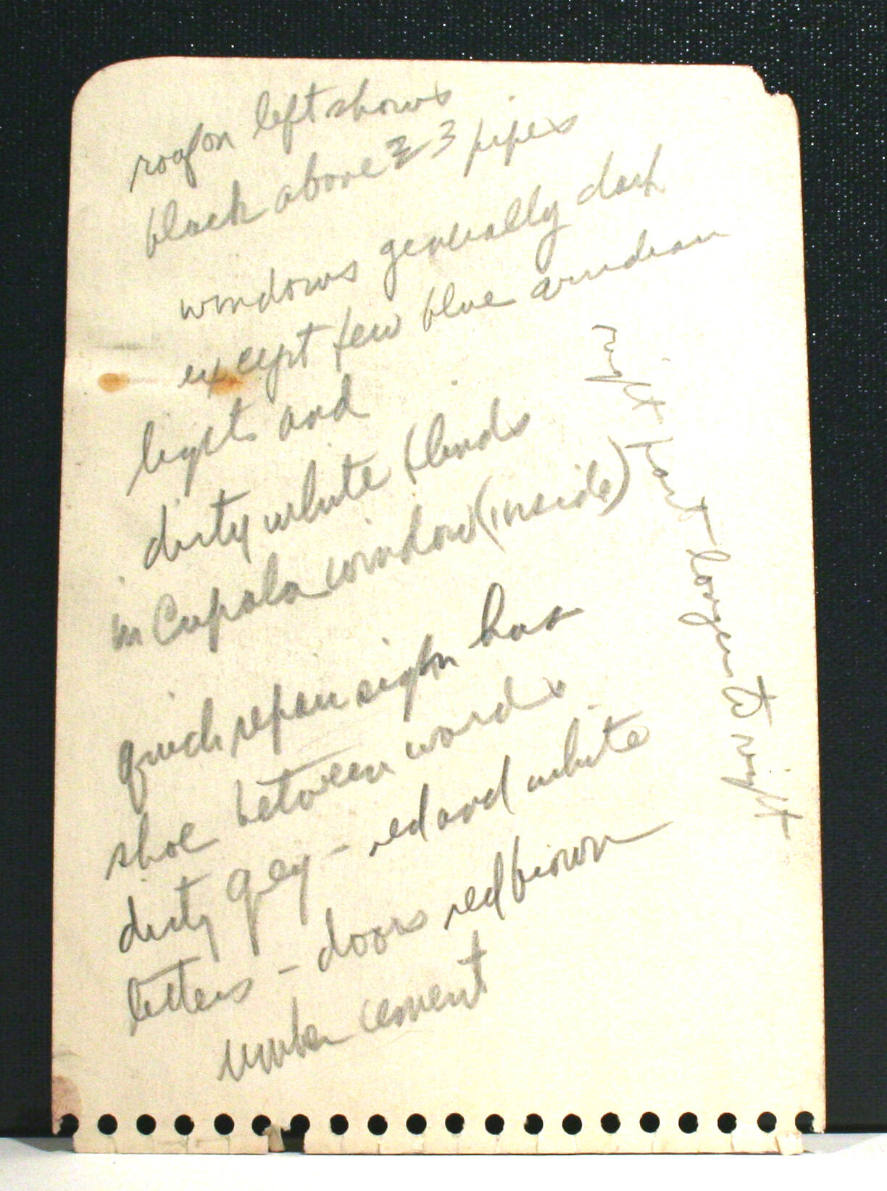 roof on left shows
black above 3 pipes
windows generally dark
except few blue viridian
lights and
dirty white blinds
in Cupola window (inside)
quick repair sign has
shoe between words
dirty grey – red and white
letters – doors red brown
umber cement
right part longer to right